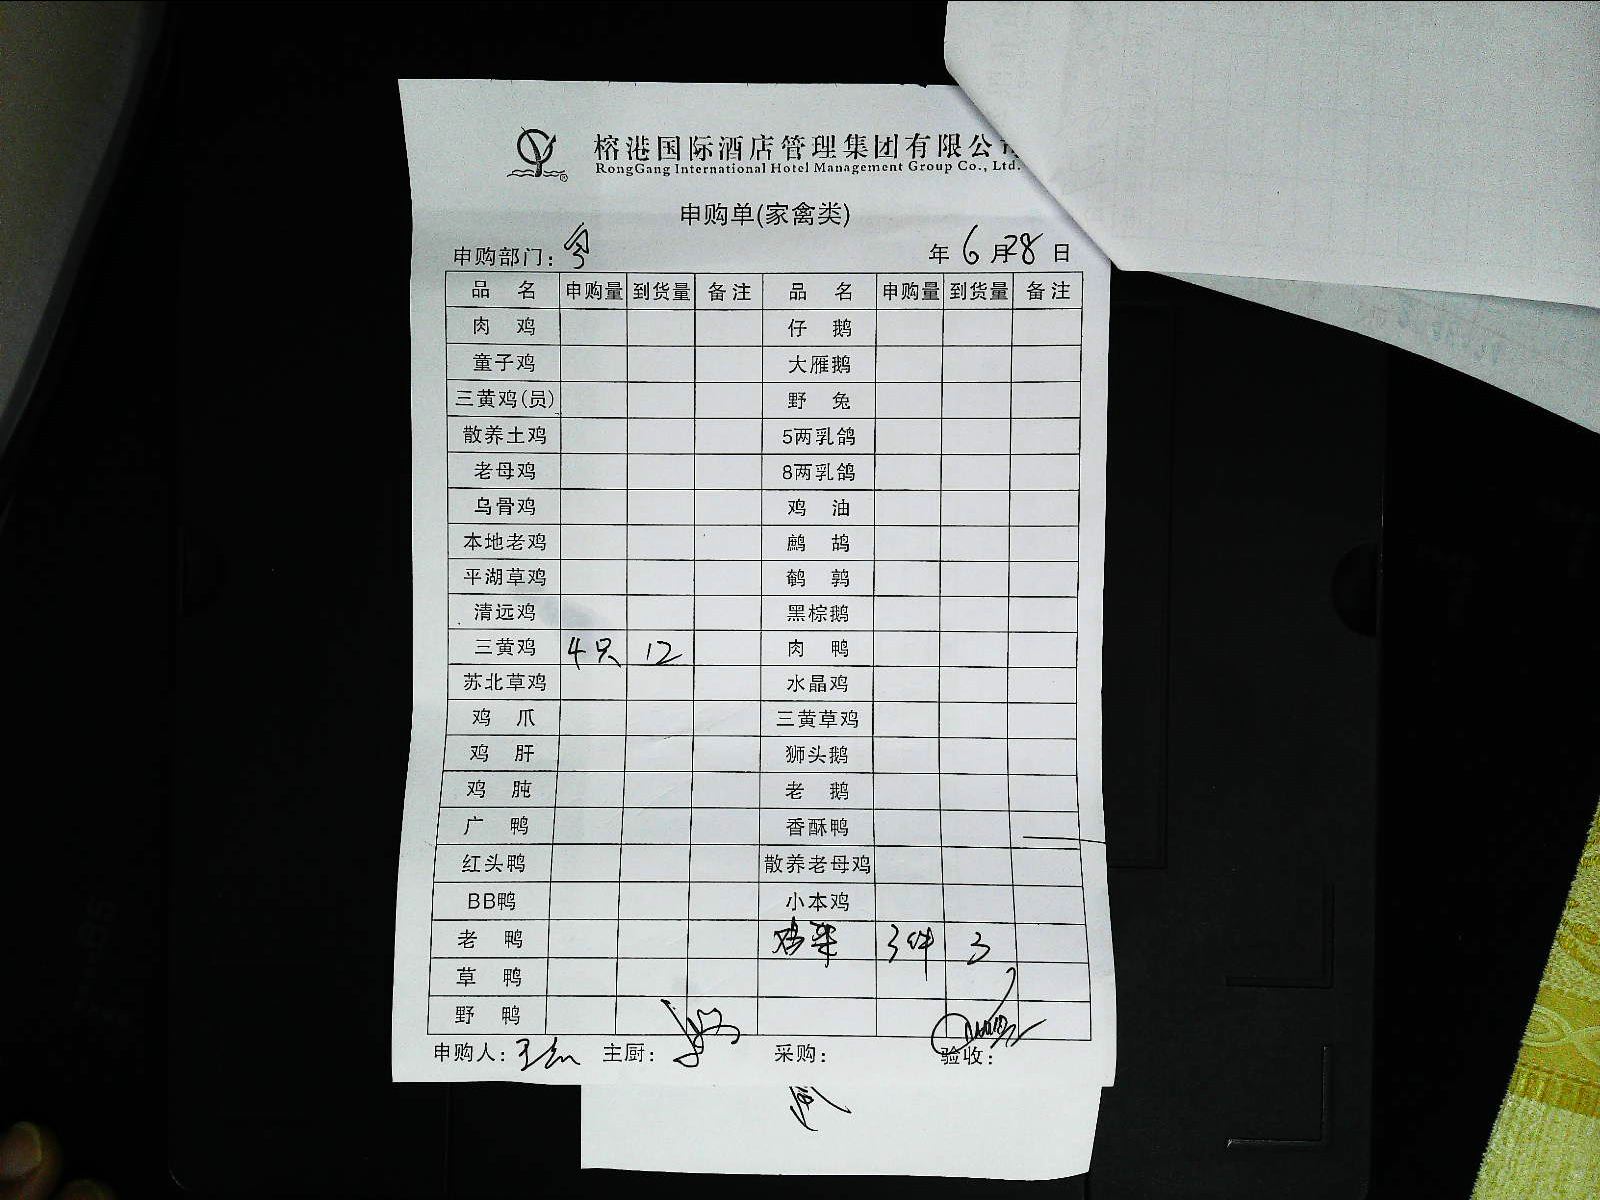 榕港国际酒店管理集团有限公司
RongGang International Hotel Management Group Co., Ltd.
申购单(家禽类)
申购部门： 年 6 月 28 日
品 名 申购量 到货量 备注 品 名 申购量 到货量 备注
肉 鸡 仔 鹅
童子鸡 大雁鹅
三黄鸡(员) 野 兔
散养土鸡 5两乳鸽
老母鸡 8两乳鸽
乌骨鸡 鸡 油
本地老鸡 鹧 鸪
平湖草鸡 鹌 鹑
清远鸡 黑棕鹅
三黄鸡 4只 12 肉 鸭
苏北草鸡 水晶鸡
鸡 爪 三黄草鸡
鸡 肝 狮头鹅
鸡 肫 老 鹅
广 鸭 香酥鸭
红头鸭 散养老母鸡
BB鸭 小本鸡
老 鸭 3件 3
草 鸭
野 鸭
申购人： 主厨： 采购： 验收：